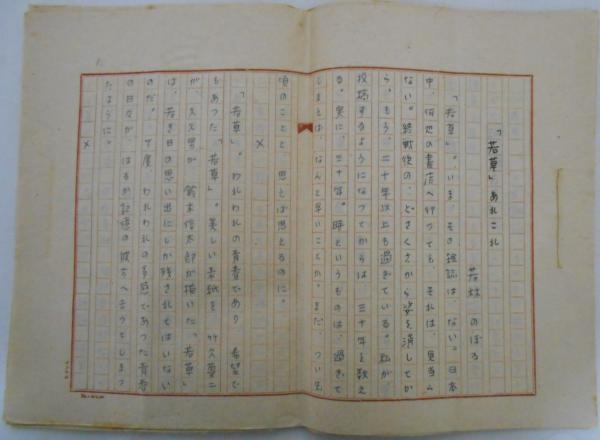 「若草」あれこれ
若林 のぼる
「若草」。いま、その雑誌は、ない。日本
中、何処の書店へ行っても、それは、見当ら
ない。終戦後の、どさくさから姿を消してか
ら、もう、二十年以上も過ぎている。私が、
投稿するようになってからは、三十年を数え
る。実に、三十年。時というものは、過ぎて
しまえば、なんと早いことか。まだ、つい先
頃のことと、思えば思えるのに。
×
「若草」。われわれの青春であり、希望で
もあった「若草」。美しい表紙を、竹久夢二
が、鈴木信太郎が描いた「若草」
は、若き日の思い出にしか残されてはいない
のだ。丁度、われわれの多感であった青春
の日々が、はるか記憶の彼方へ去ってしまっ
たように。
×